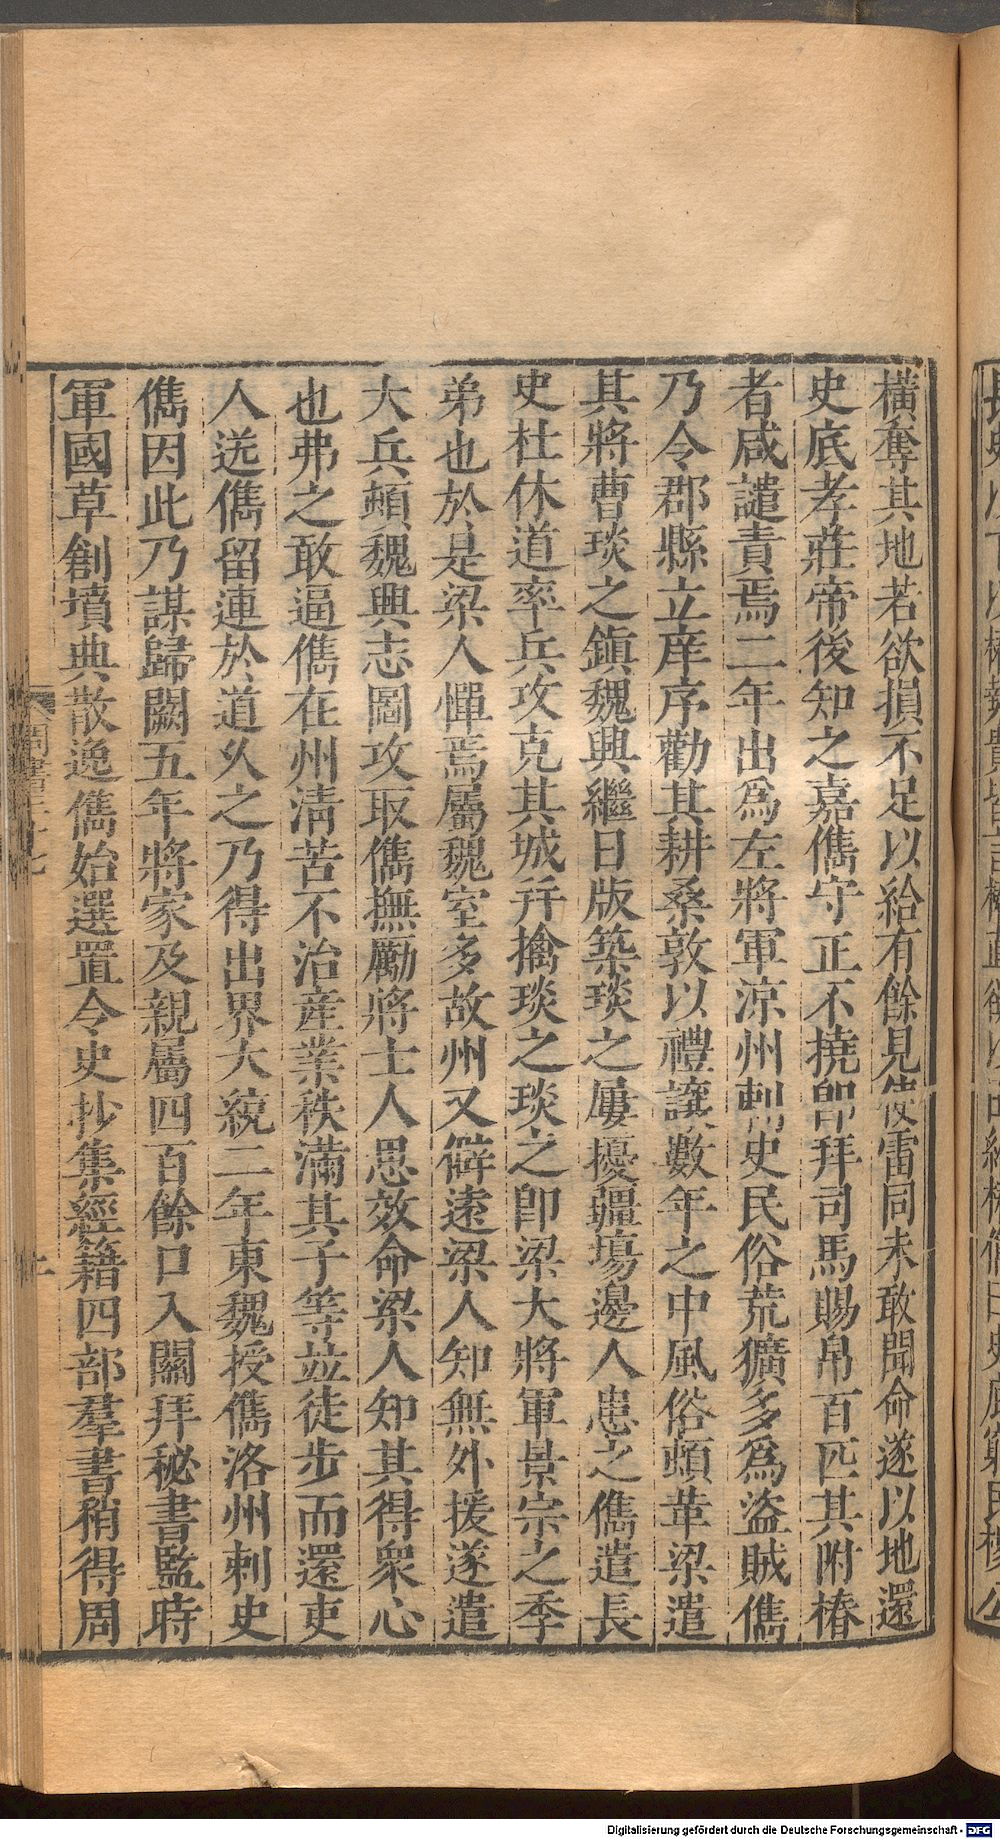 橫奪其地若欲損不足以給有餘見使雷同未敢聞命遂以地還
史底孝莊帝後知之嘉儁守正不撓卽拜司馬賜帛百匹其附椿
者咸譴責焉二年出爲左將軍涼州刺史民俗荒獷多爲盜賊儁
乃令郡縣立庠序勸其耕桑敦以禮讓數年之中風俗頓革梁遣
其將曹琰之鎮魏興繼日版築琰之屢擾疆場邊人患之儁遣長
史杜休道率兵攻克其城幷擒琰之琰之卽梁大將軍景宗之季
弟也於是梁人憚焉屬魏室多故州又僻遠梁人知無外援遂遣
大兵頓魏興志圖攻取儁撫勵將士人思效命梁人知其得衆心
也弗之敢逼儁在州清苦不治產業秩滿其子等竝徒步而還吏
人送儁留連於道乆之乃得出界大統二年東魏授儁洛州刺史
儁因此乃謀歸闕五年將家及親屬四百餘口入關拜秘書監時
軍國草創墳典散逸儁始選置令史抄集經籍四部羣書稍得周
Digitalisierung gefördert durch die Deutsche Forschungsgemeinschaft - DFG